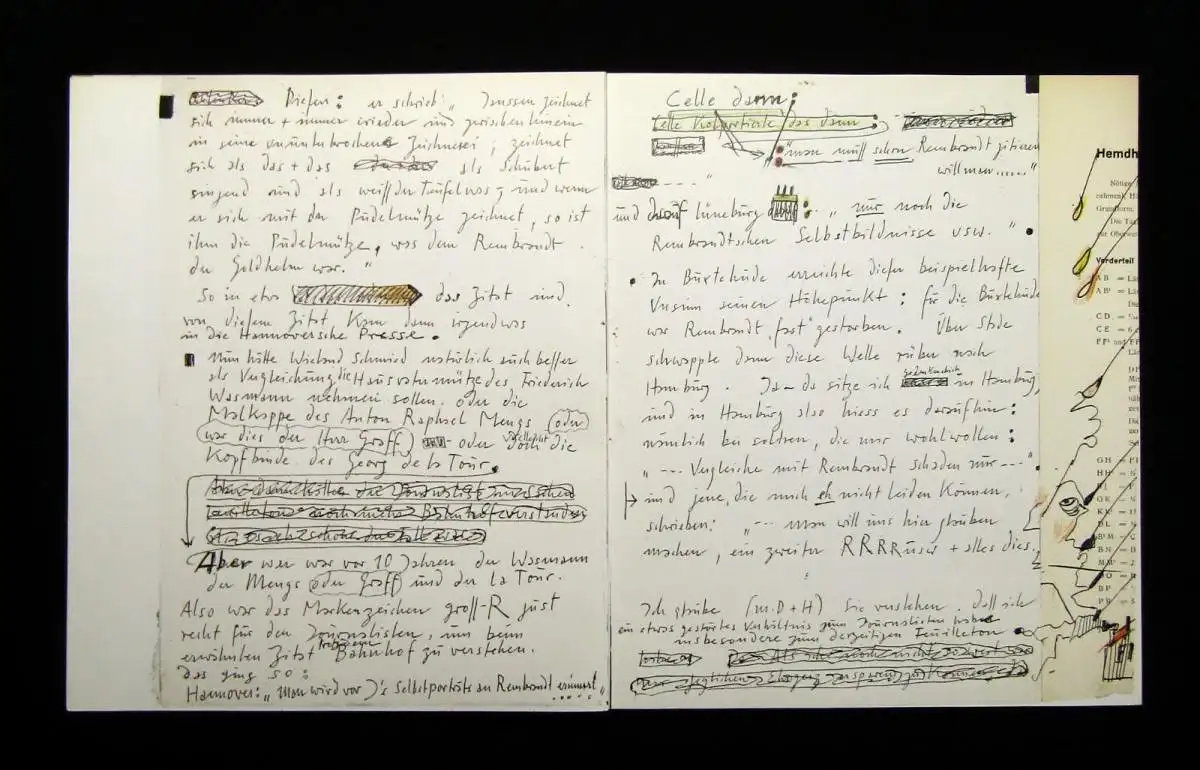 Diesen: er schrieb: „Janssen zeichnet
sich immer + immer wieder und zwischenhinein
in seine ununterbrochene Zeichnerei; zeichnet
sich als das + das als Schubert
singend und als weiss der Teufel was; und wenn
er sich mit der Pudelmütze zeichnet, so ist
ihm die Pudelmütze, was dem Rembrandt
der Goldhelm war."
So in etwa das Zitat und
von diesem Zitat kam dann irgendwas
in die Hannoversche Presse.
Nun hätte Wieland Schmied natürlich auch besser
als Vergleichung die Hausvatermütze des Friederich
Wasmann nehmen sollen, oder die
Malkappe des Anton Raphael Mengs (oder
war dies der Herr Graff) oder vielleicht doch die
Kopfbinde des Georg de la Tour.
Aber wer war vor 10 Jahren der Wasmann
der Mengs oder Graff und der la Tour.
Also war das Markenzeichen gross-R just
recht für den Journalisten, um beim
erwähnten Zitat Bahnhof zu verstehen.
das ging so:
Hannover: „Man wird vor J's Selbstporträts an Rembrandt erinnert....."
Celle dann:
Celle kolportierte das dann:
„man muss schon Rembrandt zitieren
will man......"
- - - - "
und darauf Lüneburg: „nur noch die
Rembrandtschen Selbstbildnisse usw."
In Buxtehude erreichte dieser beispielhafte
Unsinn seinen Höhepunkt: für die Buxtehude
war Rembrandt „fast" gestorben. Über Stade
schwappte dann diese Welle rüber nach
Hamburg. Da – da sitze ich in Hamburg,
und in Hamburg also hiess es daraufhin:
nämlich bei solchen, die mir wohlwollen:
„--- Vergleiche mit Rembrandt schaden nur ---"
und jene, die mich eh nicht leiden können,
schrieben: „-- man will uns hier glauben
machen, ein zweiter RRRRusw + alles dies.
Ich glaube (m.D+H) Sie verstehen, dass ich
ein etwas gestörtes Verhältnis zum Journalisten habe
insbesondere zum derzeitigen Feuilleton.
Hemdh
Nötige
Grundform.
Vorderteil
AB = Lä
CD
CE
GH
HH